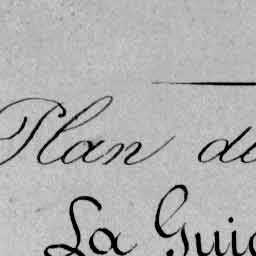 Plan de
La Gui